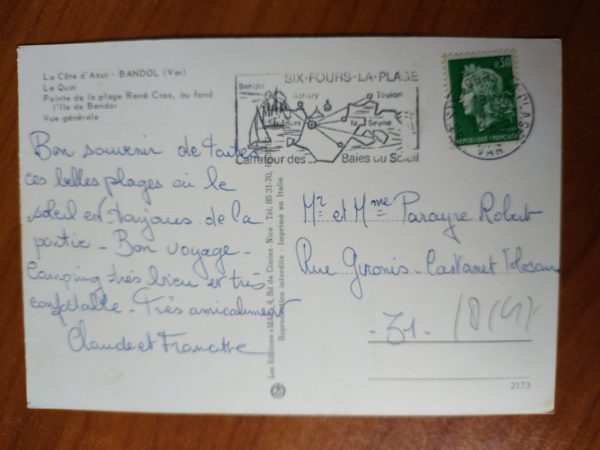 La Côte d'Azur - BANDOL (Var)
Le Quai
Pointe de la plage René Cras, au fond
l'Ile de Bendor
Vue générale
SIX-FOURS-LA-PLAGE
Bandol
Sanary
Toulon
la Seyne
Carrefour des...
Baies du Soleil
0,30
REPUBLIQUE FRANÇAISE
VAR
Bon souvenir de toutes
ces belles plages où le
soleil est toujours de la
partie - Bon voyage -
Camping très bien et très
confortable. Très amicalement
Claude et
Mr et Mme Parayre Robert
Rue Gironis - Castanet Tolosan
- 31 -
Les Editions «MAR», Bd de Cimiez - Nice - Tél.
Reproduction interdite - Imprimé en Italie
2173